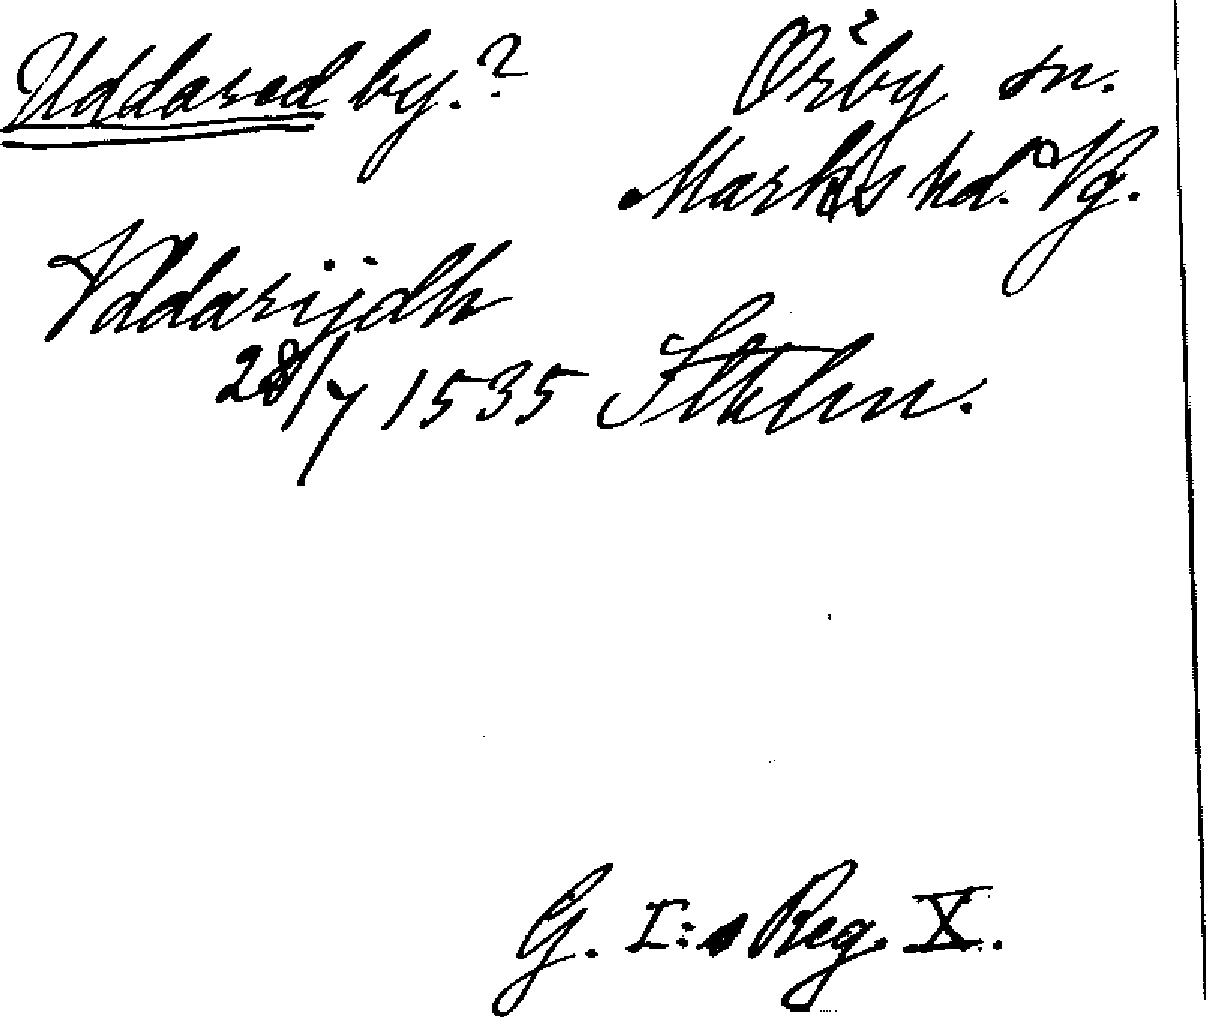 Uddared by.? Örby sn.
Marks hd. Vg.
Vddarijdh
28/7 1535 Sthlm.
G. I:s Reg. X.